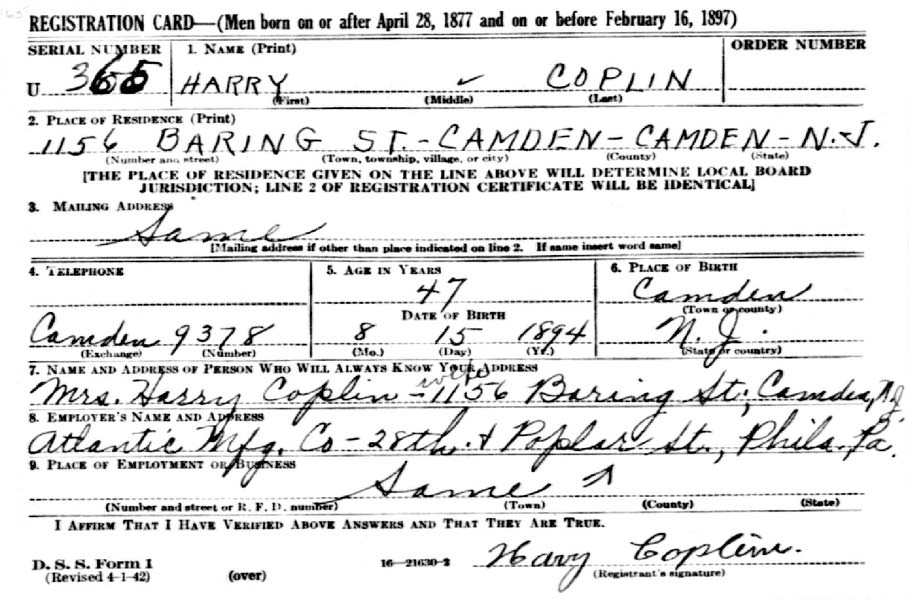 REGISTRATION CARD—(Men born on or after April 28, 1877 and on or before February 16, 1897)
SERIAL NUMBER 1. NAME (Print) ORDER NUMBER
U 365 HARRY ✓ COPLIN
(First) (Middle) (Last)
2. PLACE OF RESIDENCE (Print)
1156 BARING ST.-CAMDEN-CAMDEN-N.J.
(Number and street) (Town, township, village, or city) (County) (State)
[THE PLACE OF RESIDENCE GIVEN ON THE LINE ABOVE WILL DETERMINE LOCAL BOARD
JURISDICTION; LINE 2 OF REGISTRATION CERTIFICATE WILL BE IDENTICAL]
3. MAILING ADDRESS
Same
[Mailing address if other than place indicated on line 2. If same insert word same]
4. TELEPHONE 5. AGE IN YEARS 6. PLACE OF BIRTH
47 Camden
DATE OF BIRTH (Town or county)
Camden 9378 8 15 1894 N.J.
(Exchange) (Number) (Mo.) (Day) (Yr.) (State or country)
7. NAME AND ADDRESS OF PERSON WHO WILL ALWAYS KNOW YOUR ADDRESS
wife
Mrs. Harry Coplin - 1156 Baring St., Camden, N.J.
8. EMPLOYER'S NAME AND ADDRESS
Atlantic Mfg. Co - 28th. & Poplar St., Phila. Pa.
9. PLACE OF EMPLOYMENT OR BUSINESS
Same ↑
(Number and street or R. F. D. number) (Town) (County) (State)
I AFFIRM THAT I HAVE VERIFIED ABOVE ANSWERS AND THAT THEY ARE TRUE.
D. S. S. Form 1 16—21630-2 Harry Coplin.
(Revised 4-1-42) (over) (Registrant's signature)